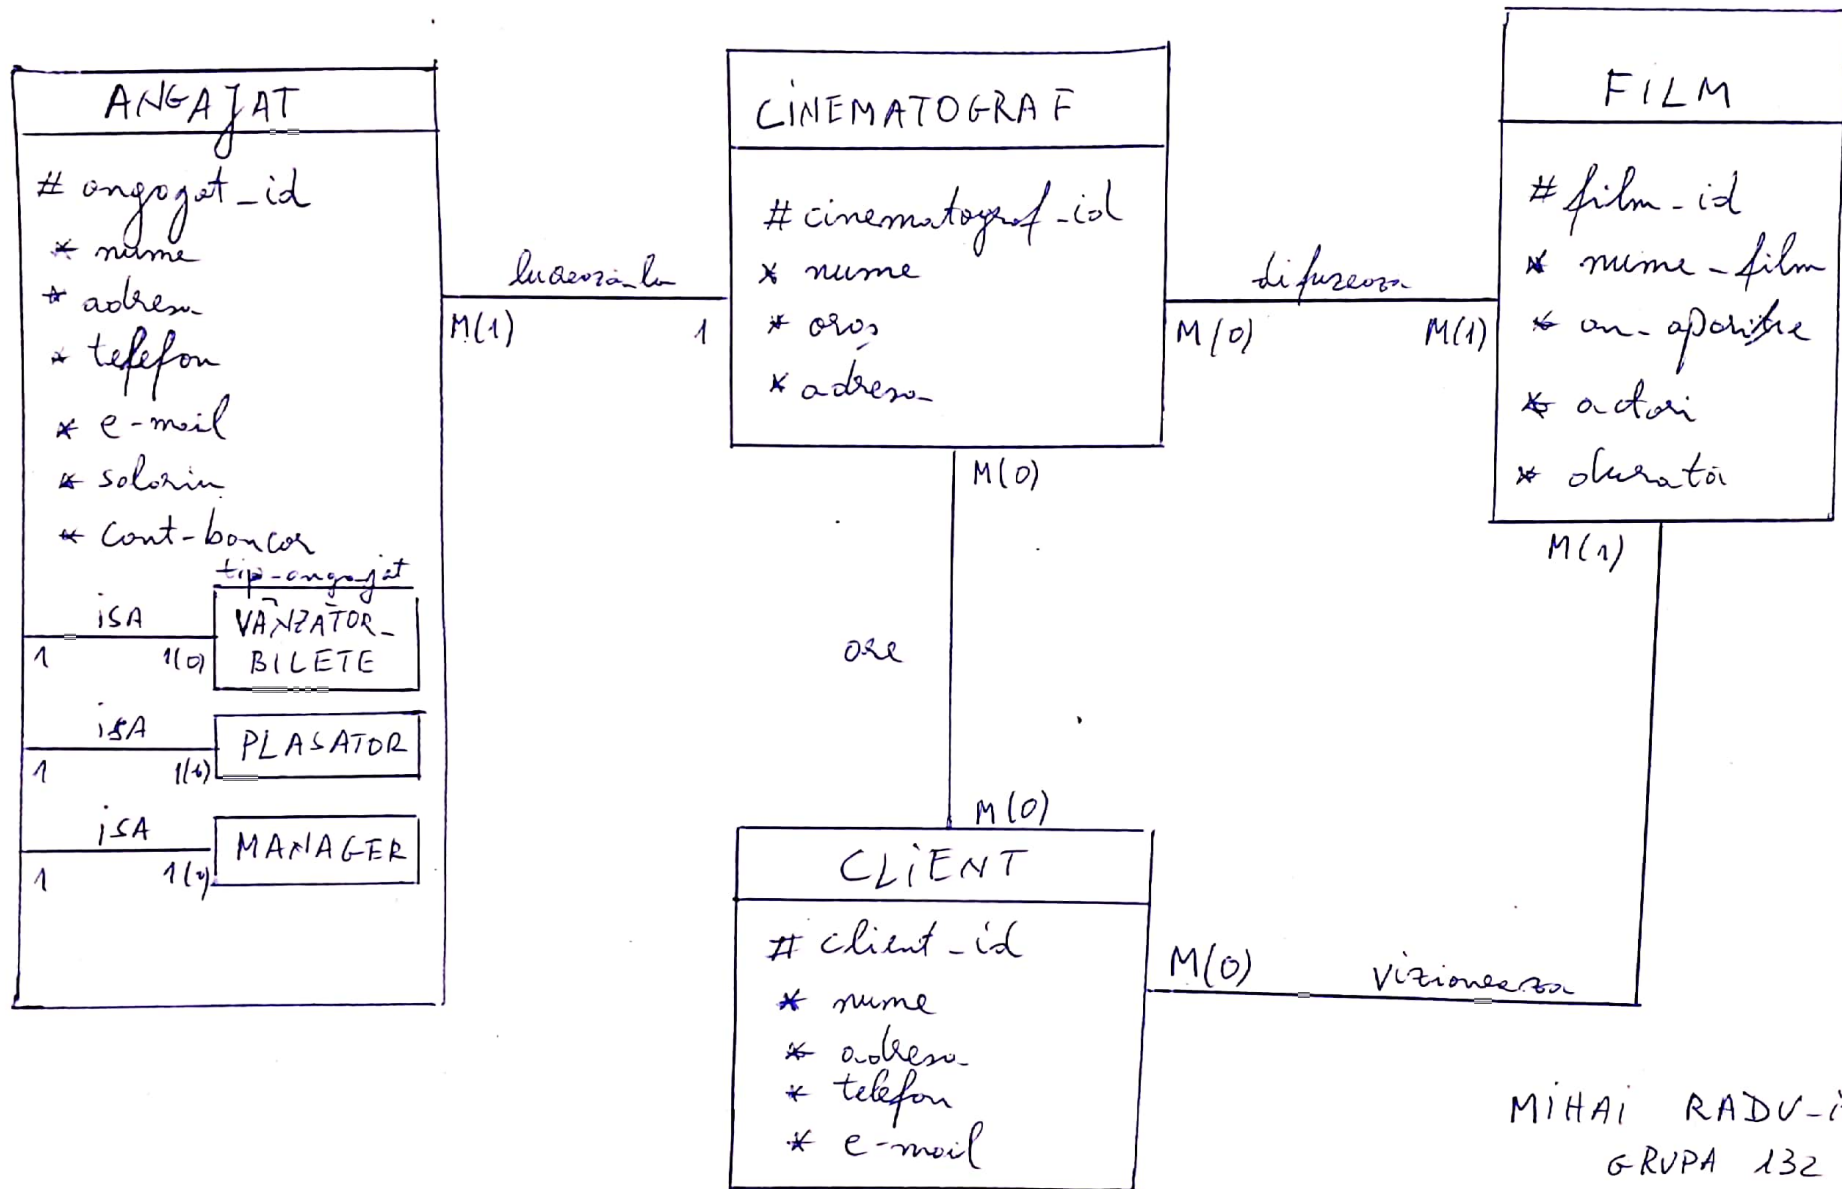 ANGAJAT
# angajat_id
* nume
* adresa
* telefon
* e-mail
* salariu
* cont-bancar
tip-angajat
isA
1
1(0)
VÂNZĂTOR_
BILETE
isA
1
1(0)
PLASATOR
isA
1
1(0)
MANAGER
lucreaza_la
M(1)
1
CINEMATOGRAF
# cinematograf_id
* nume
* oraș
* adresa
difuzeaza
M(0)
M(1)
FILM
# film_id
* nume_film
* an_aparitie
* actori
* durată
M(0)
are
M(0)
M(1)
CLIENT
# client_id
* nume
* adresa
* telefon
* e-mail
M(0)
vizioneaza
MIHAI RADU-
GRUPA 132